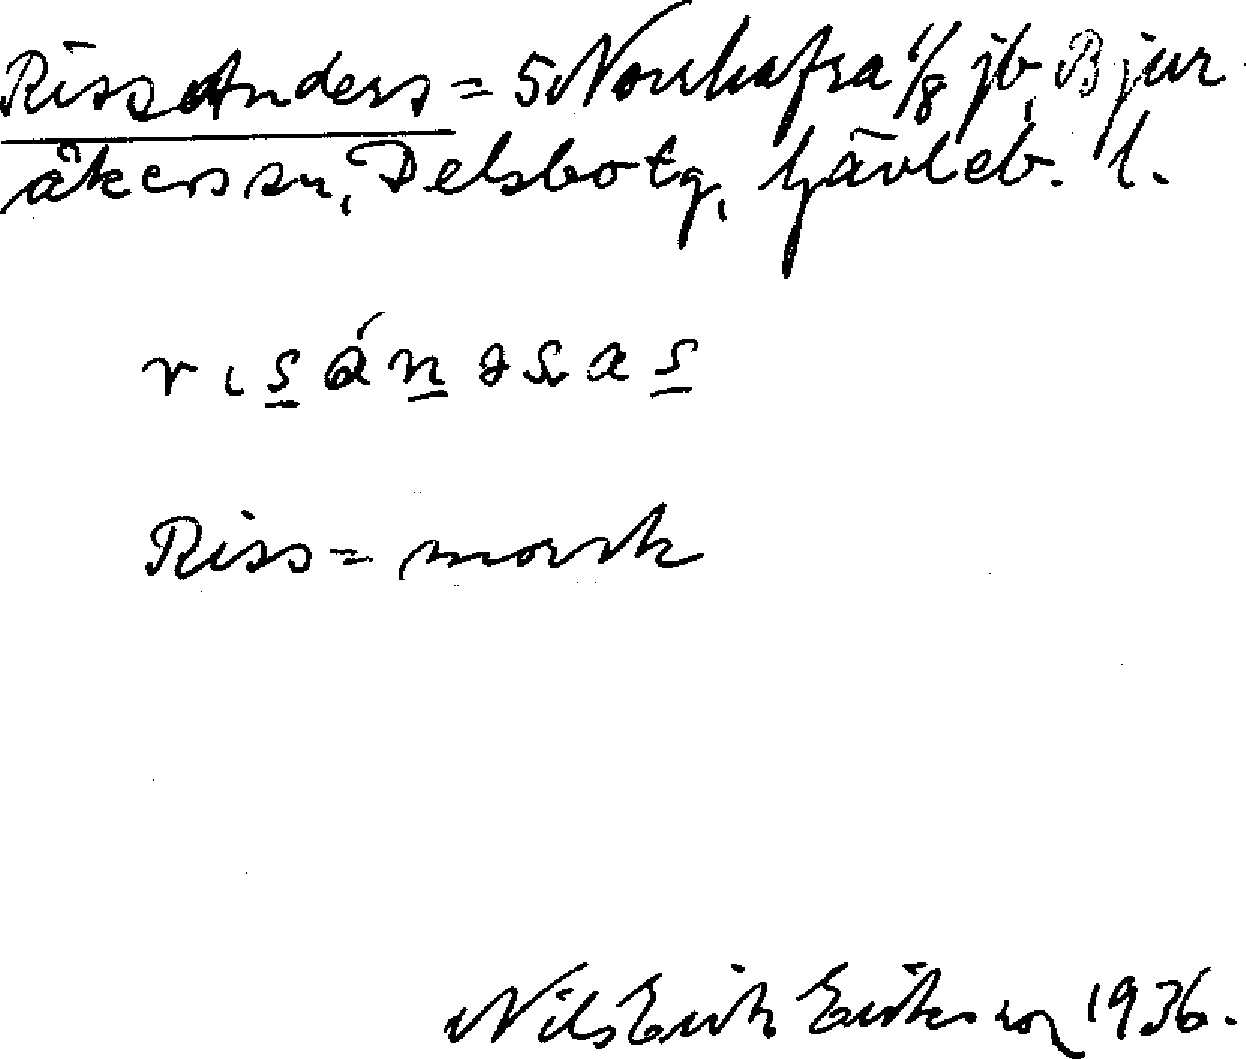 Riss Anders = 5 Norrhafra 1/8 jb, Bjur
åkers sn, Delsbo tg, Gävleb. l.
Riss = morsk
Nils Erik Eriksson 1936.